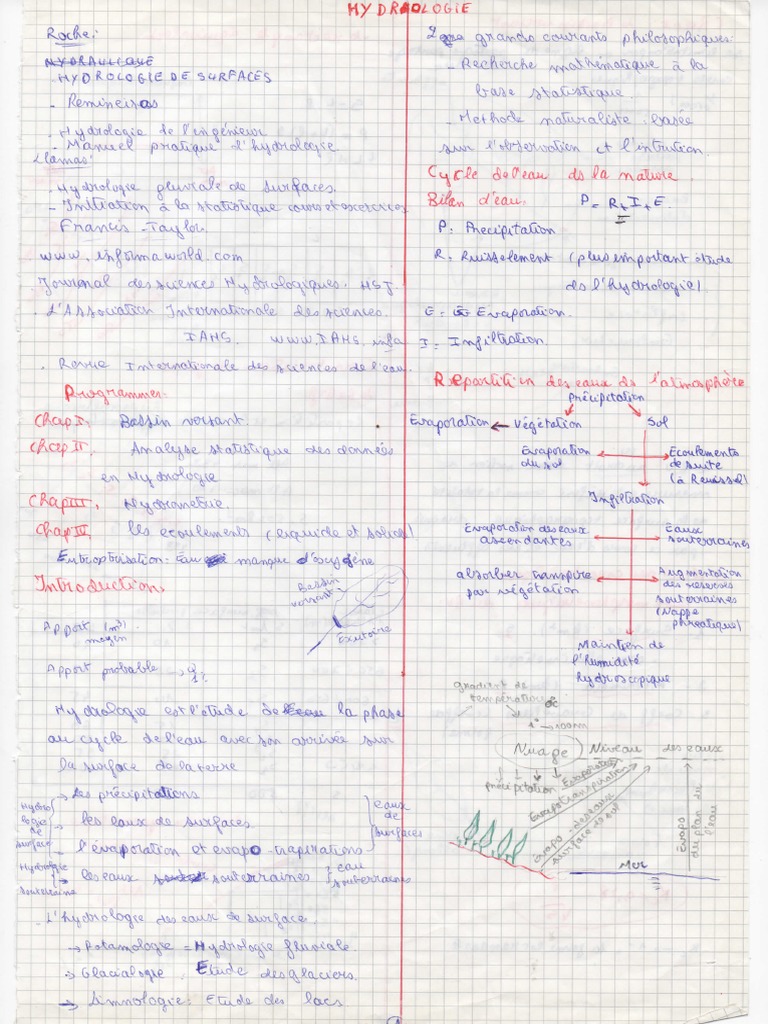 HYDROLOGIE
Roche:
HYDRAULIQUE
HYDROLOGIE DE SURFACES
- Remineras
- Hydrologie de l'ingénieur
- Manuel pratique d'hydrologie
Llamas:
- Hydrologie fluviale de surfaces.
- Initiation à la statistique cours et exercices
Francis-Taylor.
www.informaworld.com
Journal des sciences Hydrologiques. HSJ.
. L'Association Internationale des sciences.
IAHS. www.IAHS.info
. Revue Internationale des sciences de l'eau.
Programme:
Chap I, Bassin versant.
Chap II. Analyse statistique des données
en Hydrologie
Chap III, Hydrometrie.
Chap IV les ecoulements (liquide et solide)
Eutrophisation: Eau manque d'oxygène
Introduction,
Bassin
versant
Exutoire
Apport (m³)
moyen
Apport probable → 1%
Hydrologie est l'étude de l'eau la phase
au cycle de l'eau avec son arrivée sur
la surface de la terre
→ Les précipitations
→ les eaux de surfaces
→ l'évaporation et evapo-trapirations
→ les eaux souterraines
Hydro
logie
de
surface
Hydrologie
souterraine
Eaux
de
surfaces
eau
souterraines
. L'hydrologie des eaux de surface.
→ Potamologie = Hydrologie fluviale.
→ Glacialogie: Etude des glaciers.
→ Limnologie: Etude des lacs
2 grands courants philosophiques:
- Recherche mathématique à la
base statistique.
- Methode naturaliste basée
sur l'observation et l'intution.
Cycle de l'eau ds la nature.
Bilan d'eau. P = R + I + E.
P: Précipitation
R. Ruissellement (plus important étude
de l'hydrologie)
E = Évaporation.
I = Infiltration.
Répartition des eaux de l'atmosphère
Précipitation
Evaporation ← Végétation Sol
Evaporation
du sol
Ecoulements
de suite
(à Ruissel)
Infiltration
Evaporation des eaux
ascendantes
Eaux
souterraines
absorber transpire
par végétation
Augmentation
des réserves
souterraines
(Nappe
phréatique)
Maintien de
l'humidité
hydroscopique
gradient de
température °c
1° → 100m
Nuage Niveau des eaux
Précipitation
Evaporation
Evapotranspiration
Evapo des eaux
surface du sol
Evapo
du plan de
l'eau
Mer